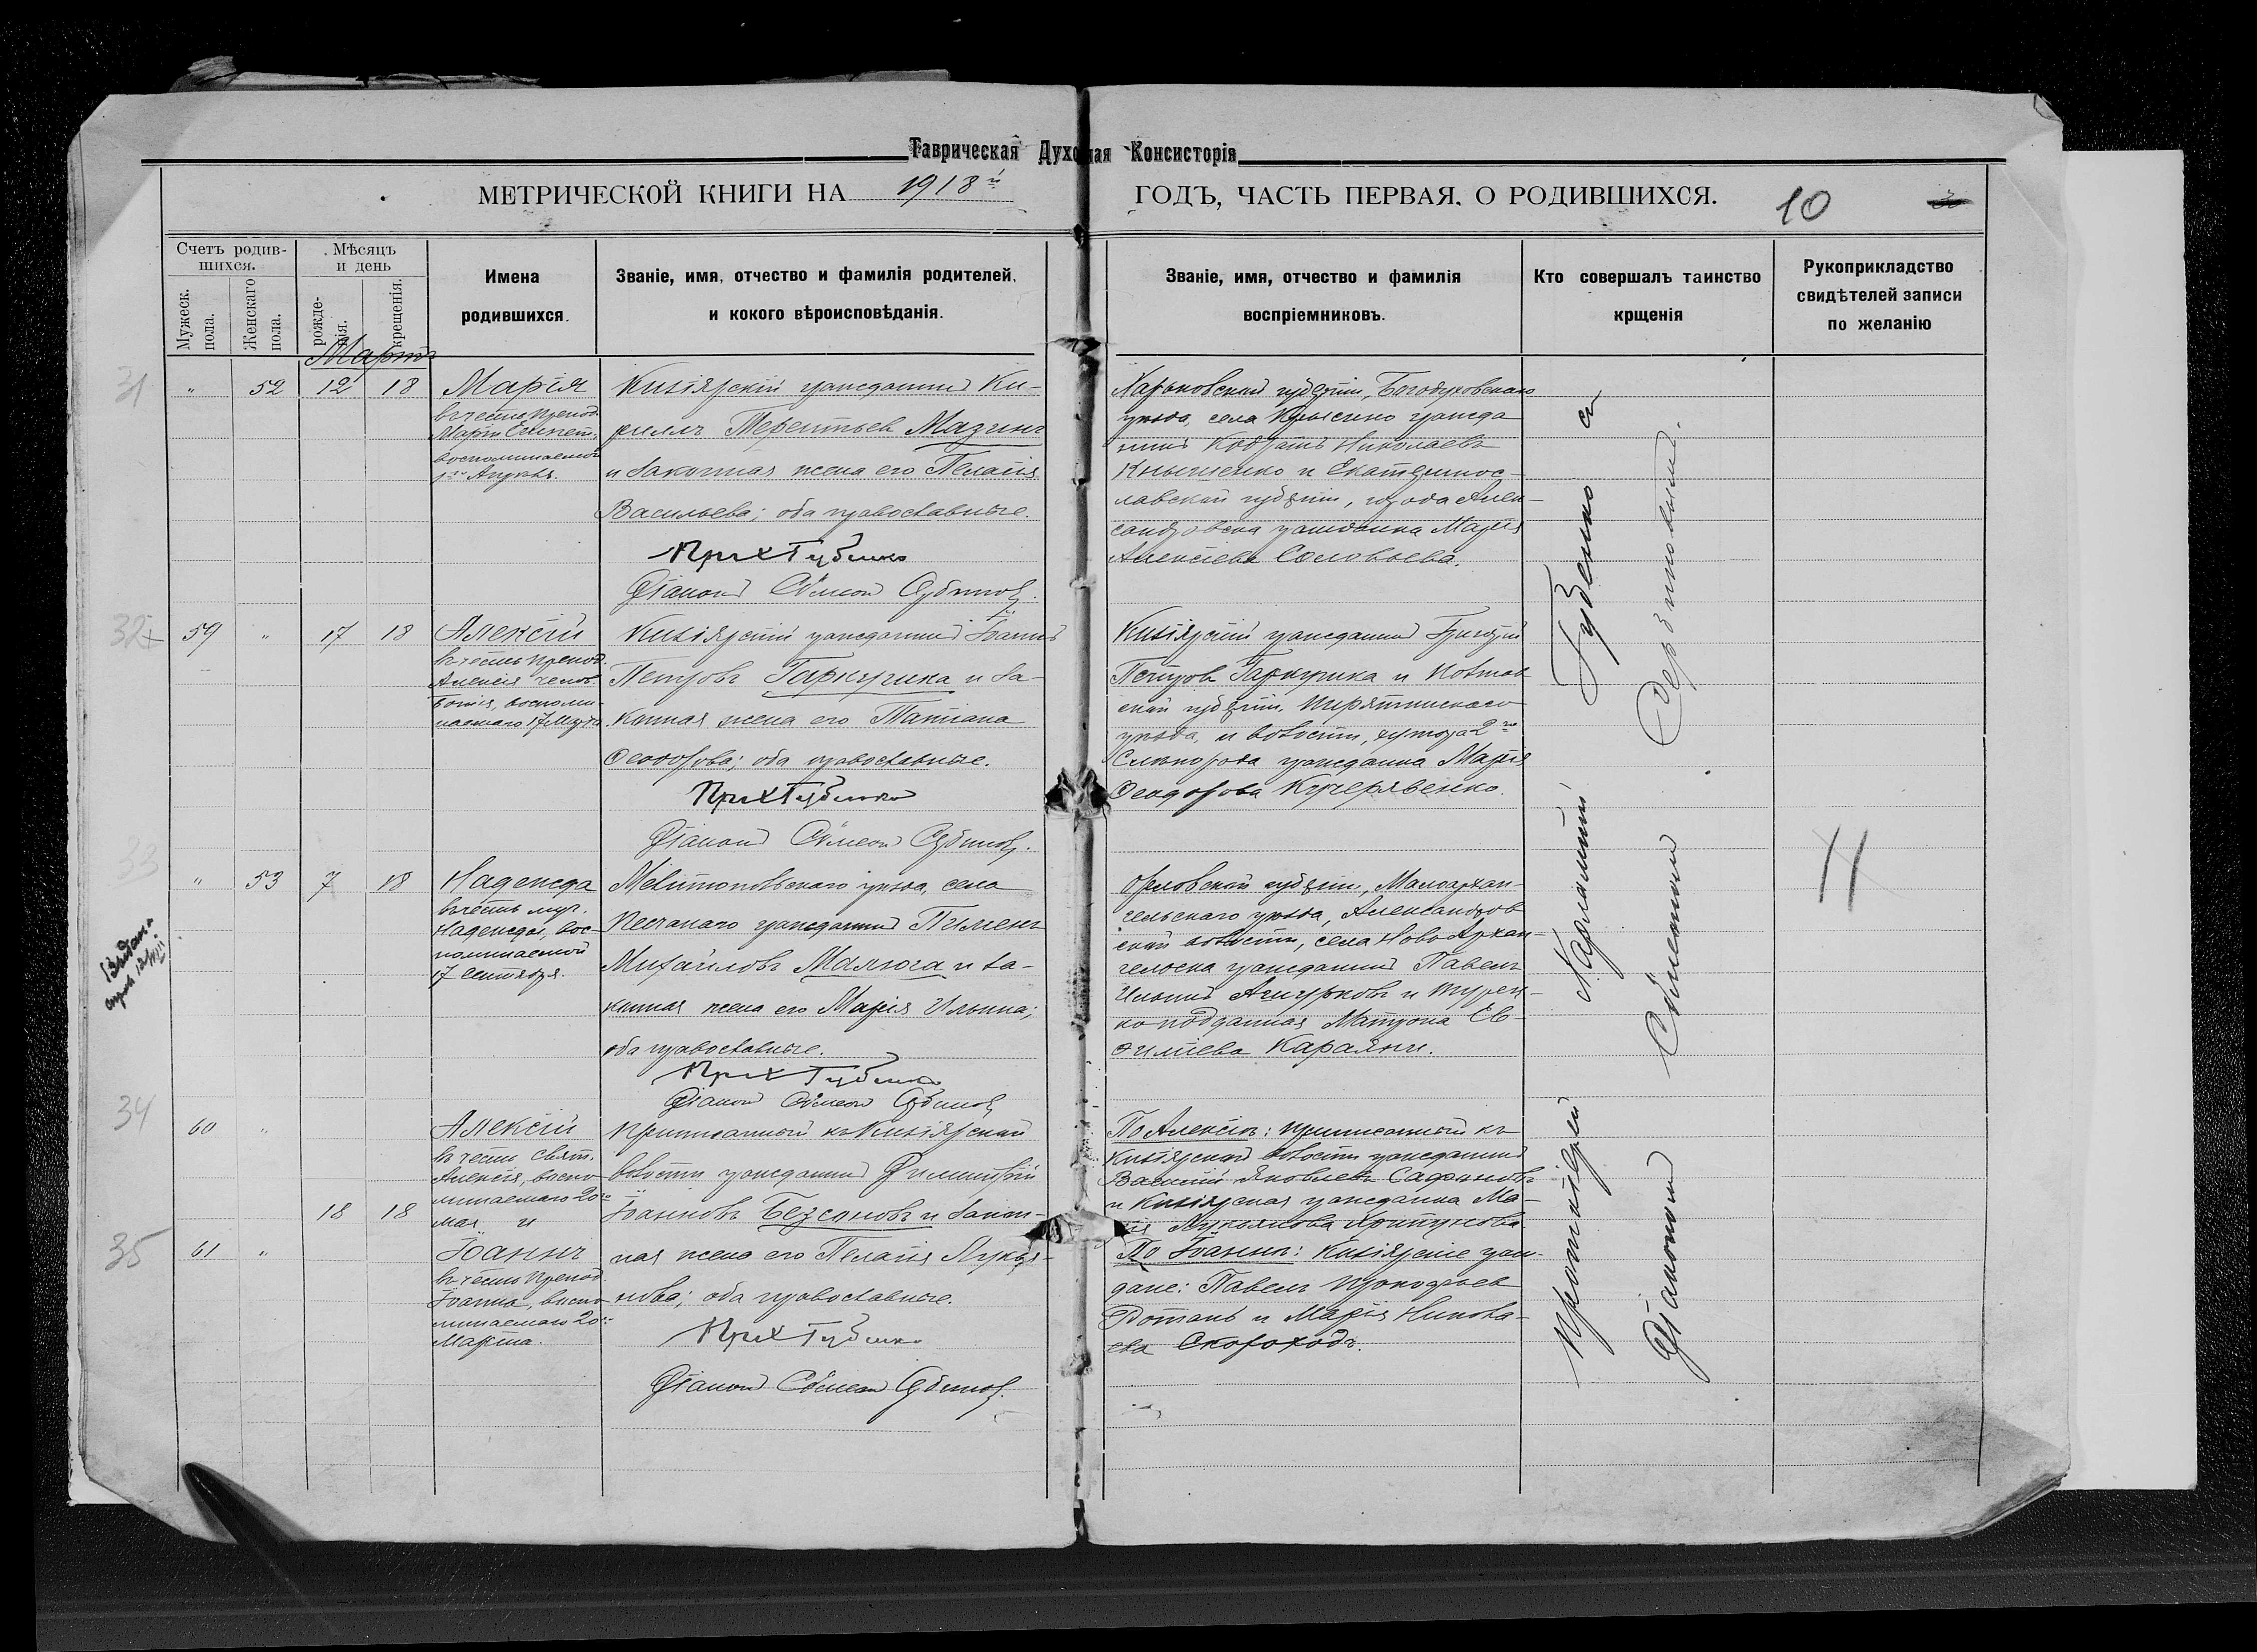 Таврическая Духовная Консисторія
МЕТРИЧЕСКОЙ КНИГИ НА 1918й ГОДЪ, ЧАСТЬ ПЕРВАЯ. О РОДИВШИХСЯ.
10
Счетъ родив-
шихся.
Мужеск. пола.
Женскаго пола.
Мѣсяцъ
и день
рожде-
нія.
крещенія.
Имена
родившихся.
Званіе, имя, отчество и фамилія родителей,
и кокого вѣроисповѣданія.
Званіе, имя, отчество и фамилія
воспріемниковъ.
Кто совершалъ таинство
крщенія
Рукоприкладство
свидѣтелей записи
по желанію
Мартъ
31
" 52 12 18
Марія
въ честь препод.
Маріи Египет.
воспоминаемой
1го Апрѣля.
Кизіярскій гражданинъ Ки-
риллъ Терентьев Мазинъ
и законная жена его Пелагія
Васильева; оба православные.
Прих Губенко
Діаконъ Сѵмеон
Харьковской губерніи, Богодуховскаго
уѣзда, села гражда
нинъ Кодратъ Николаевъ
и Екатеринос-
лавской губерніи, города Алек-
сандровска гражданка Марія
Алексіева Соловьева.
32
59 " 17 18
Алексій
въ честь препод.
Алексія челов.
Божія, воспоми-
наемаго 17 Марта.
Кизіярскій гражданинъ Іоаннъ
Петровъ Гаркуша и за-
конная жена его Татіана
Ѳеодорова; оба православные.
Прих Губенко
Діаконъ Сѵмеон
Кизіярскій гражданинъ Григорій
Петров и Полтав
ской губерніи, Пирятинскаго
уѣзда, и волости, хутора 2го
гражданка Марія
Ѳеодорова Кучерявенко.
33
" 53 7 18
Надежда
въ честь муч.
Надежды, вос-
поминаемой
17 Сентября.
Мелитопольскаго уѣзда, села
Песчанаго гражданинъ Пименъ
Михаиловъ Малюга и за-
конная жена его Марія Ильина;
оба православные.
Прих Губенко
Діаконъ Сѵмеон
Орловской губерніи, Малоархан-
гельскаго уѣзда, Александров
ской волости, села Ново Архан-
гельска гражданинъ Павелъ
Ильинъ и турец-
ко подданная Матрона Ев-
ѳиміева
34
60 "
Алексій
въ честь свят.
Алексія, воспо
минаемаго 20го
мая и
18 18
35
61 "
Іоаннъ
въ честь препод.
Іоанна, воспо
минаемаго 20го
Марта.
Приписанный къ Кизіярской
волости гражданинъ Димитрій
Іоанновъ Безсоновъ и закон-
ная жена его Пелагія Лукья-
нова; оба православные.
Прих Губенко
Діаконъ Сѵмеон
По Алексію: приписанный къ
Кизіярской волости гражданинъ
Василій Яковлевъ Сафоновъ
и Кизіярская гражданка Ма-
рія Лукьянова
По Іоанну: Кизіярскіе граж-
дане: Павелъ Прокофьев
и Марія Никола-
ева Скороходъ.
Протоіерей Харлампій Губенко съ
Діакономъ Сѵмеономъ